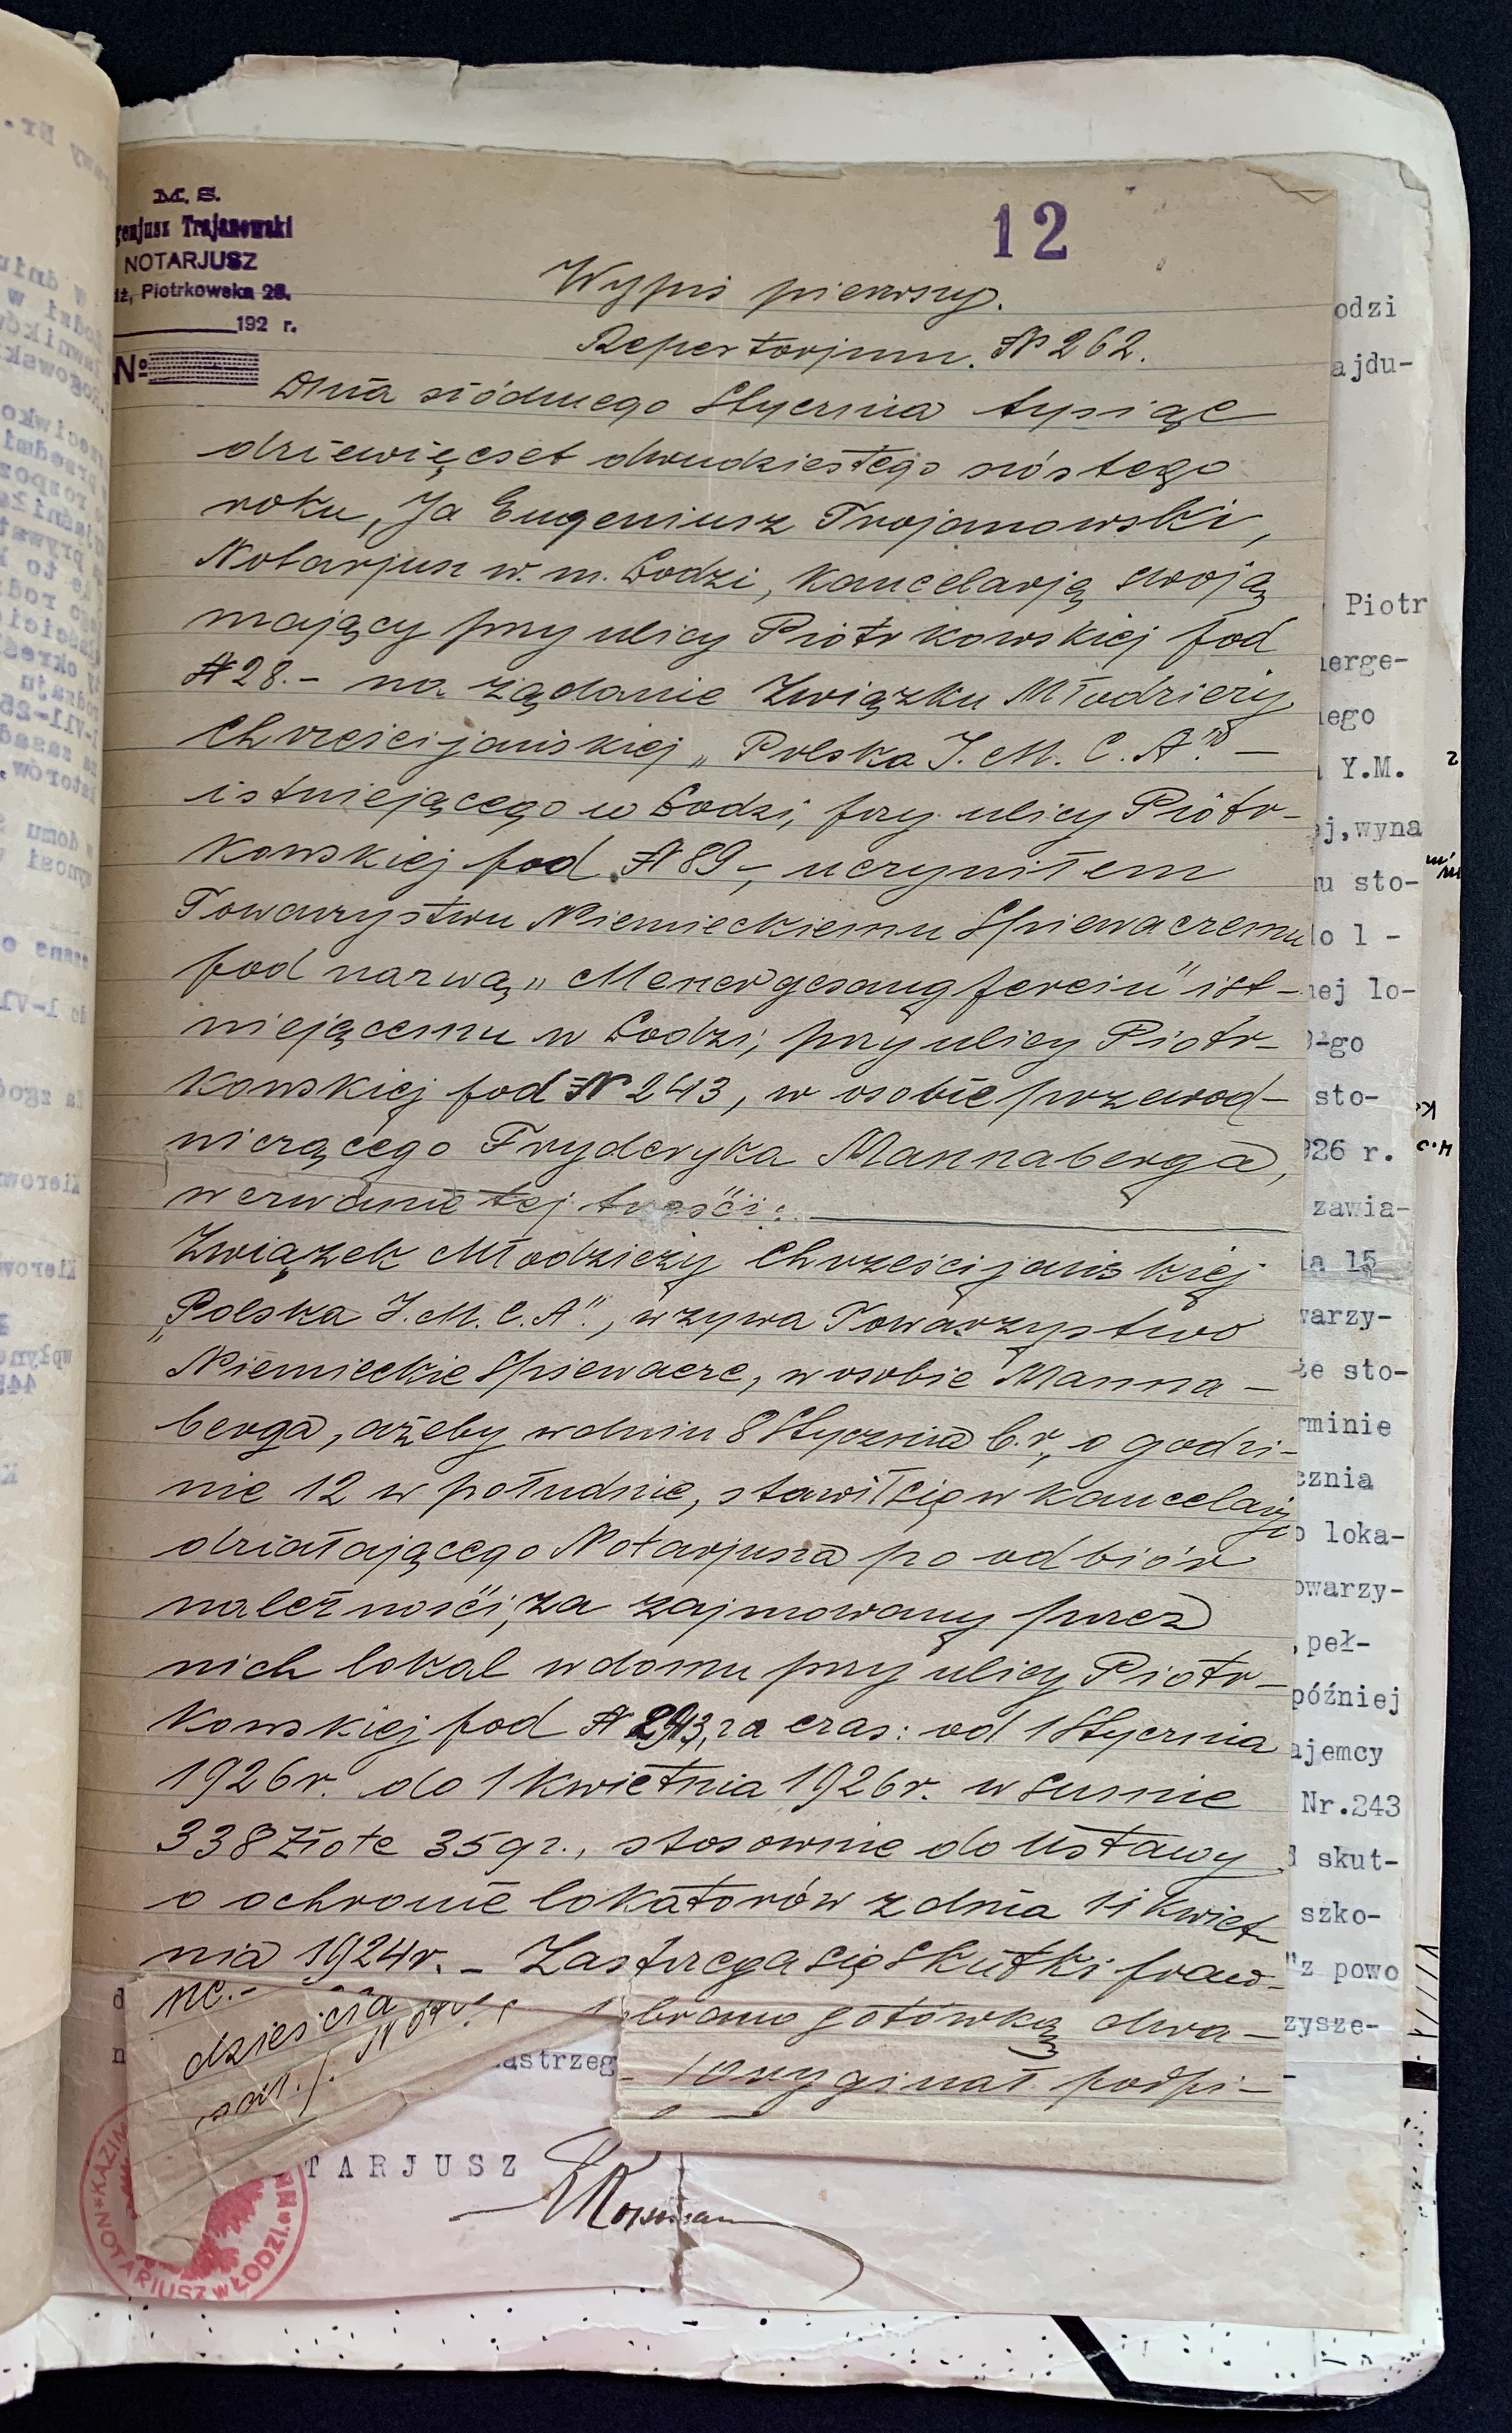 M. S.
genjusz Trojanowski
NOTARJUSZ
dź, Piotrkowska 28.
192 r.
№
12
Wypis pierwszy.
Repertorjum. № 262.
Dnia siódmego Stycznia tysiąc
dziewięćset dwudziestego szóstego
roku, Ja Eugeniusz Trojanowski,
Notarjusz w. m. Łodzi, kancelarję swoją
mający przy ulicy Piotrkowskiej pod
№ 28.- na żądanie Związku Młodzieży
Chrześcijańskiej „Polska I. M. C. A." —
istniejącego w Łodzi, przy ulicy Piotr-
kowskiej pod № 89-, uczyniłem
Towarzystwu Niemieckiemu Śpiewaczemu
pod nazwą „Menergesangferein" ist-
niejącemu w Łodzi, przy ulicy Piotr-
kowskiej pod № 243, w osobie przewod-
niczącego Fryderyka Mannaberga,
wezwanie tej treści: —
Związek Młodzieży Chrześcijańskiej
„Polska I. M. C. A", wzywa Towarzystwo
Niemieckie Śpiewacze, w osobie Manna-
berga, ażeby w dniu 8 Stycznia b. r., o godzi-
nie 12 w południe, stawił się w kancelarji
działającego Notarjusza po odbiór
należności, za zajmowany przez
nich lokal w domu przy ulicy Piotr-
kowskiej pod № 243, za czas: od 1 Stycznia
1926 r. do 1 kwietnia 1926 r. w sumie
338 złote 35 gr., stosownie do Ustawy
o ochronie lokatorów z dnia 11 kwiet-
nia 1924 r. - Zastrzega się skutki praw-
ne.- brano gotówką dwa-
dzieścia
/Oryginał podpi-
sał./. Not
astrzeg
TARJUSZ
NOTARIUSZ W ŁODZI * KAZIM
odzi
ajdu-
Piotr
erge-
ego
Y.M.
j, wyna
u sto-
o 1 -
ej lo-
-go
sto-
926 r.
zawia-
ia 15
warzy-
że sto-
rminie
cznia
o loka-
owarzy-
, peł-
później
ajemcy
Nr.243
skut-
szko-
"z powo
zysze-